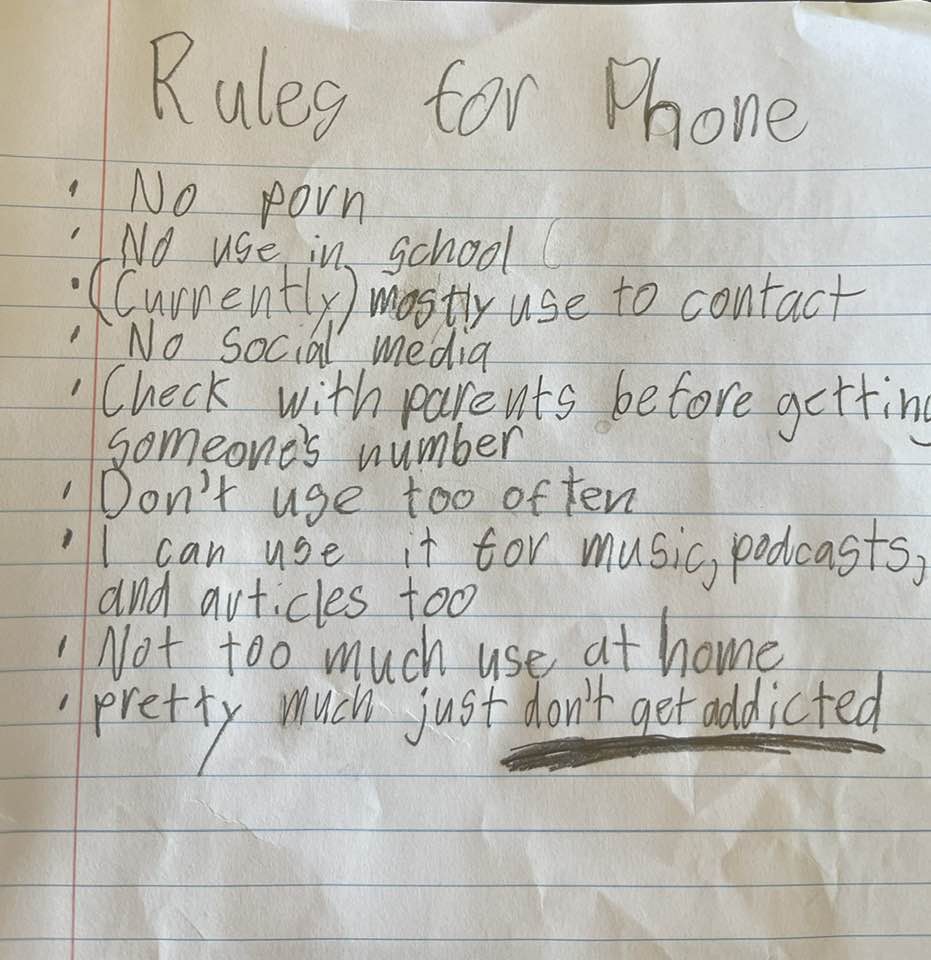 Rules for Phone
· No porn
· No use in school (
· (Currently) mostly use to contact
· No social media
· Check with parents before getting
someone's number
· Don't use too often
· I can use it for music, podcasts,
and articles too
· Not too much use at home
· pretty much just don't get addicted